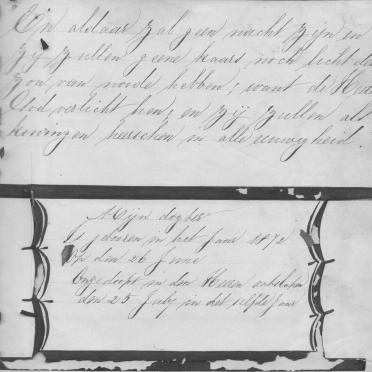 "En aldaar zal geen nacht zijn en
zij zullen geene kaars, noch licht der
zon van noode hebben; want de Heere
God verlicht hen; en zij zullen als
koningen heerschen in alle eeuwigheid.
Mijn dogter
Is gebooren in het Jaar 1872
Op den 26 June
Ongedoopt in den Heere ontslapen
den 25 July in dit selfde Jaar